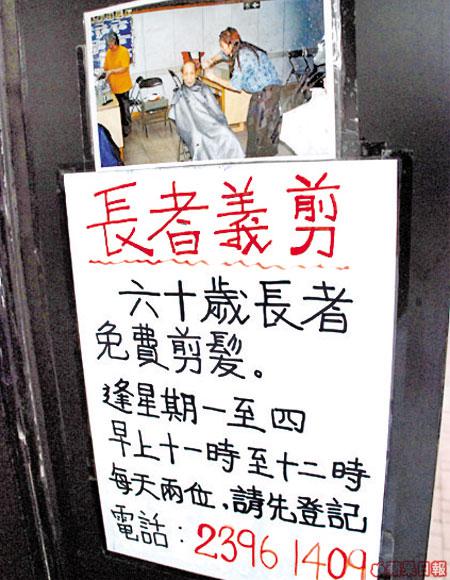 長者義剪
六十歲長者
免費剪髮。
逢星期一至四
早上十一時至十二時
每天兩位，請先登記
電話：2396 1409
蘋果日報